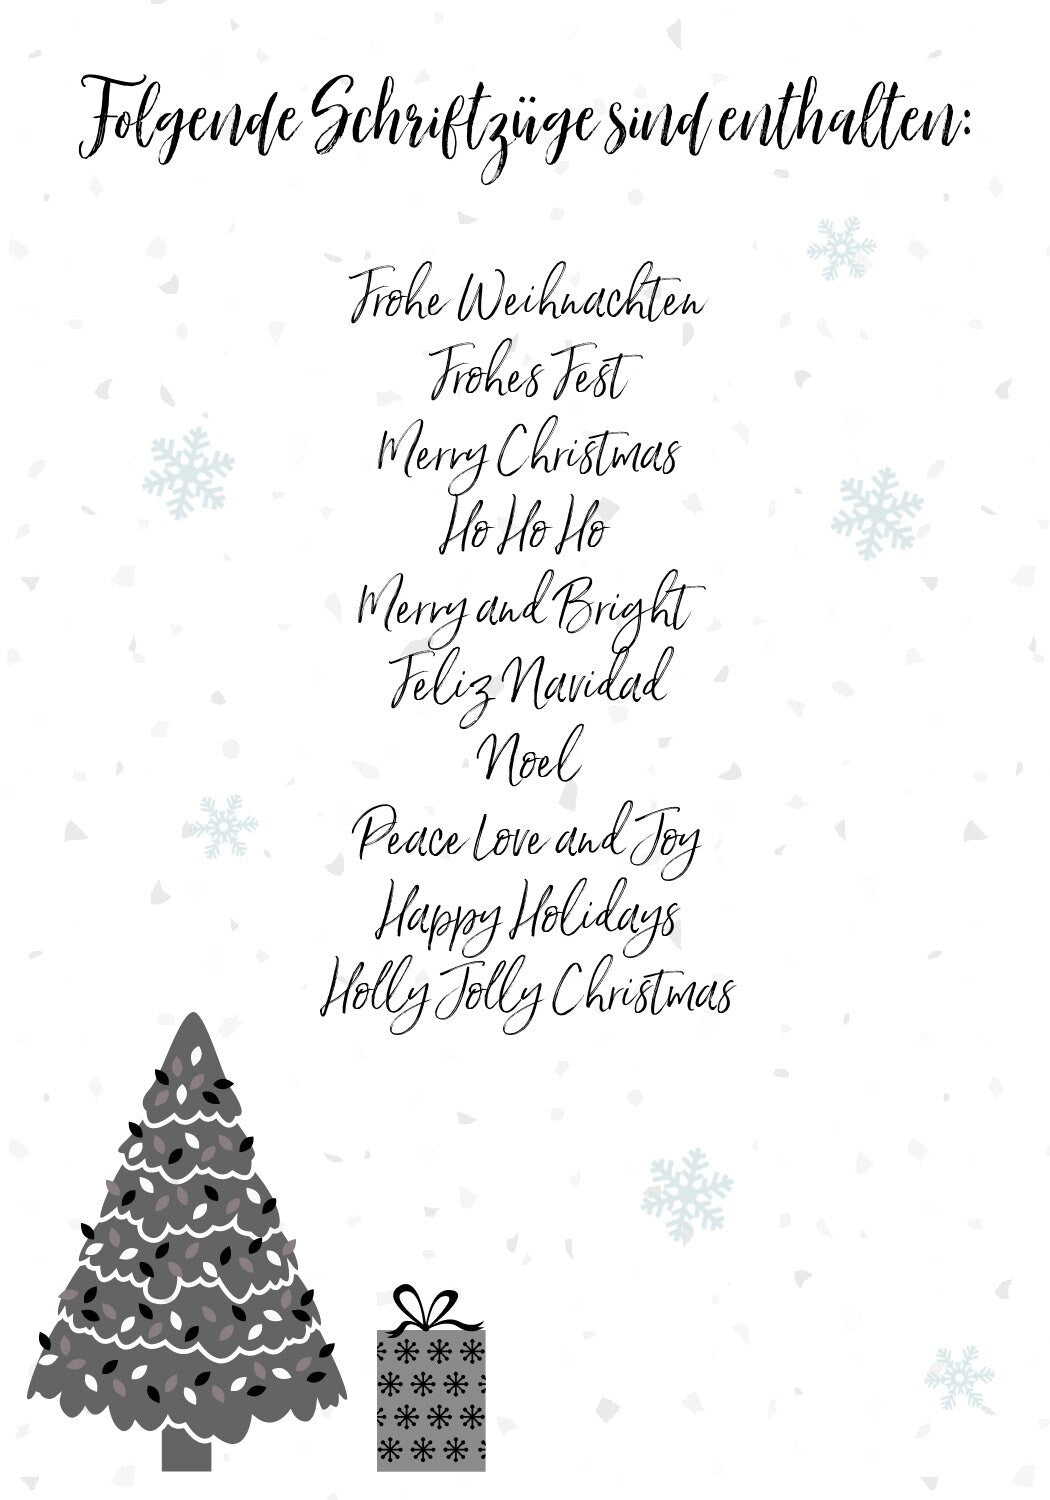 Folgende Schriftzüge sind enthalten:
Frohe Weihnachten
Frohes Fest
Merry Christmas
Ho Ho Ho
Merry and Bright
Feliz Navidad
Noel
Peace Love and Joy
Happy Holidays
Holly Jolly Christmas